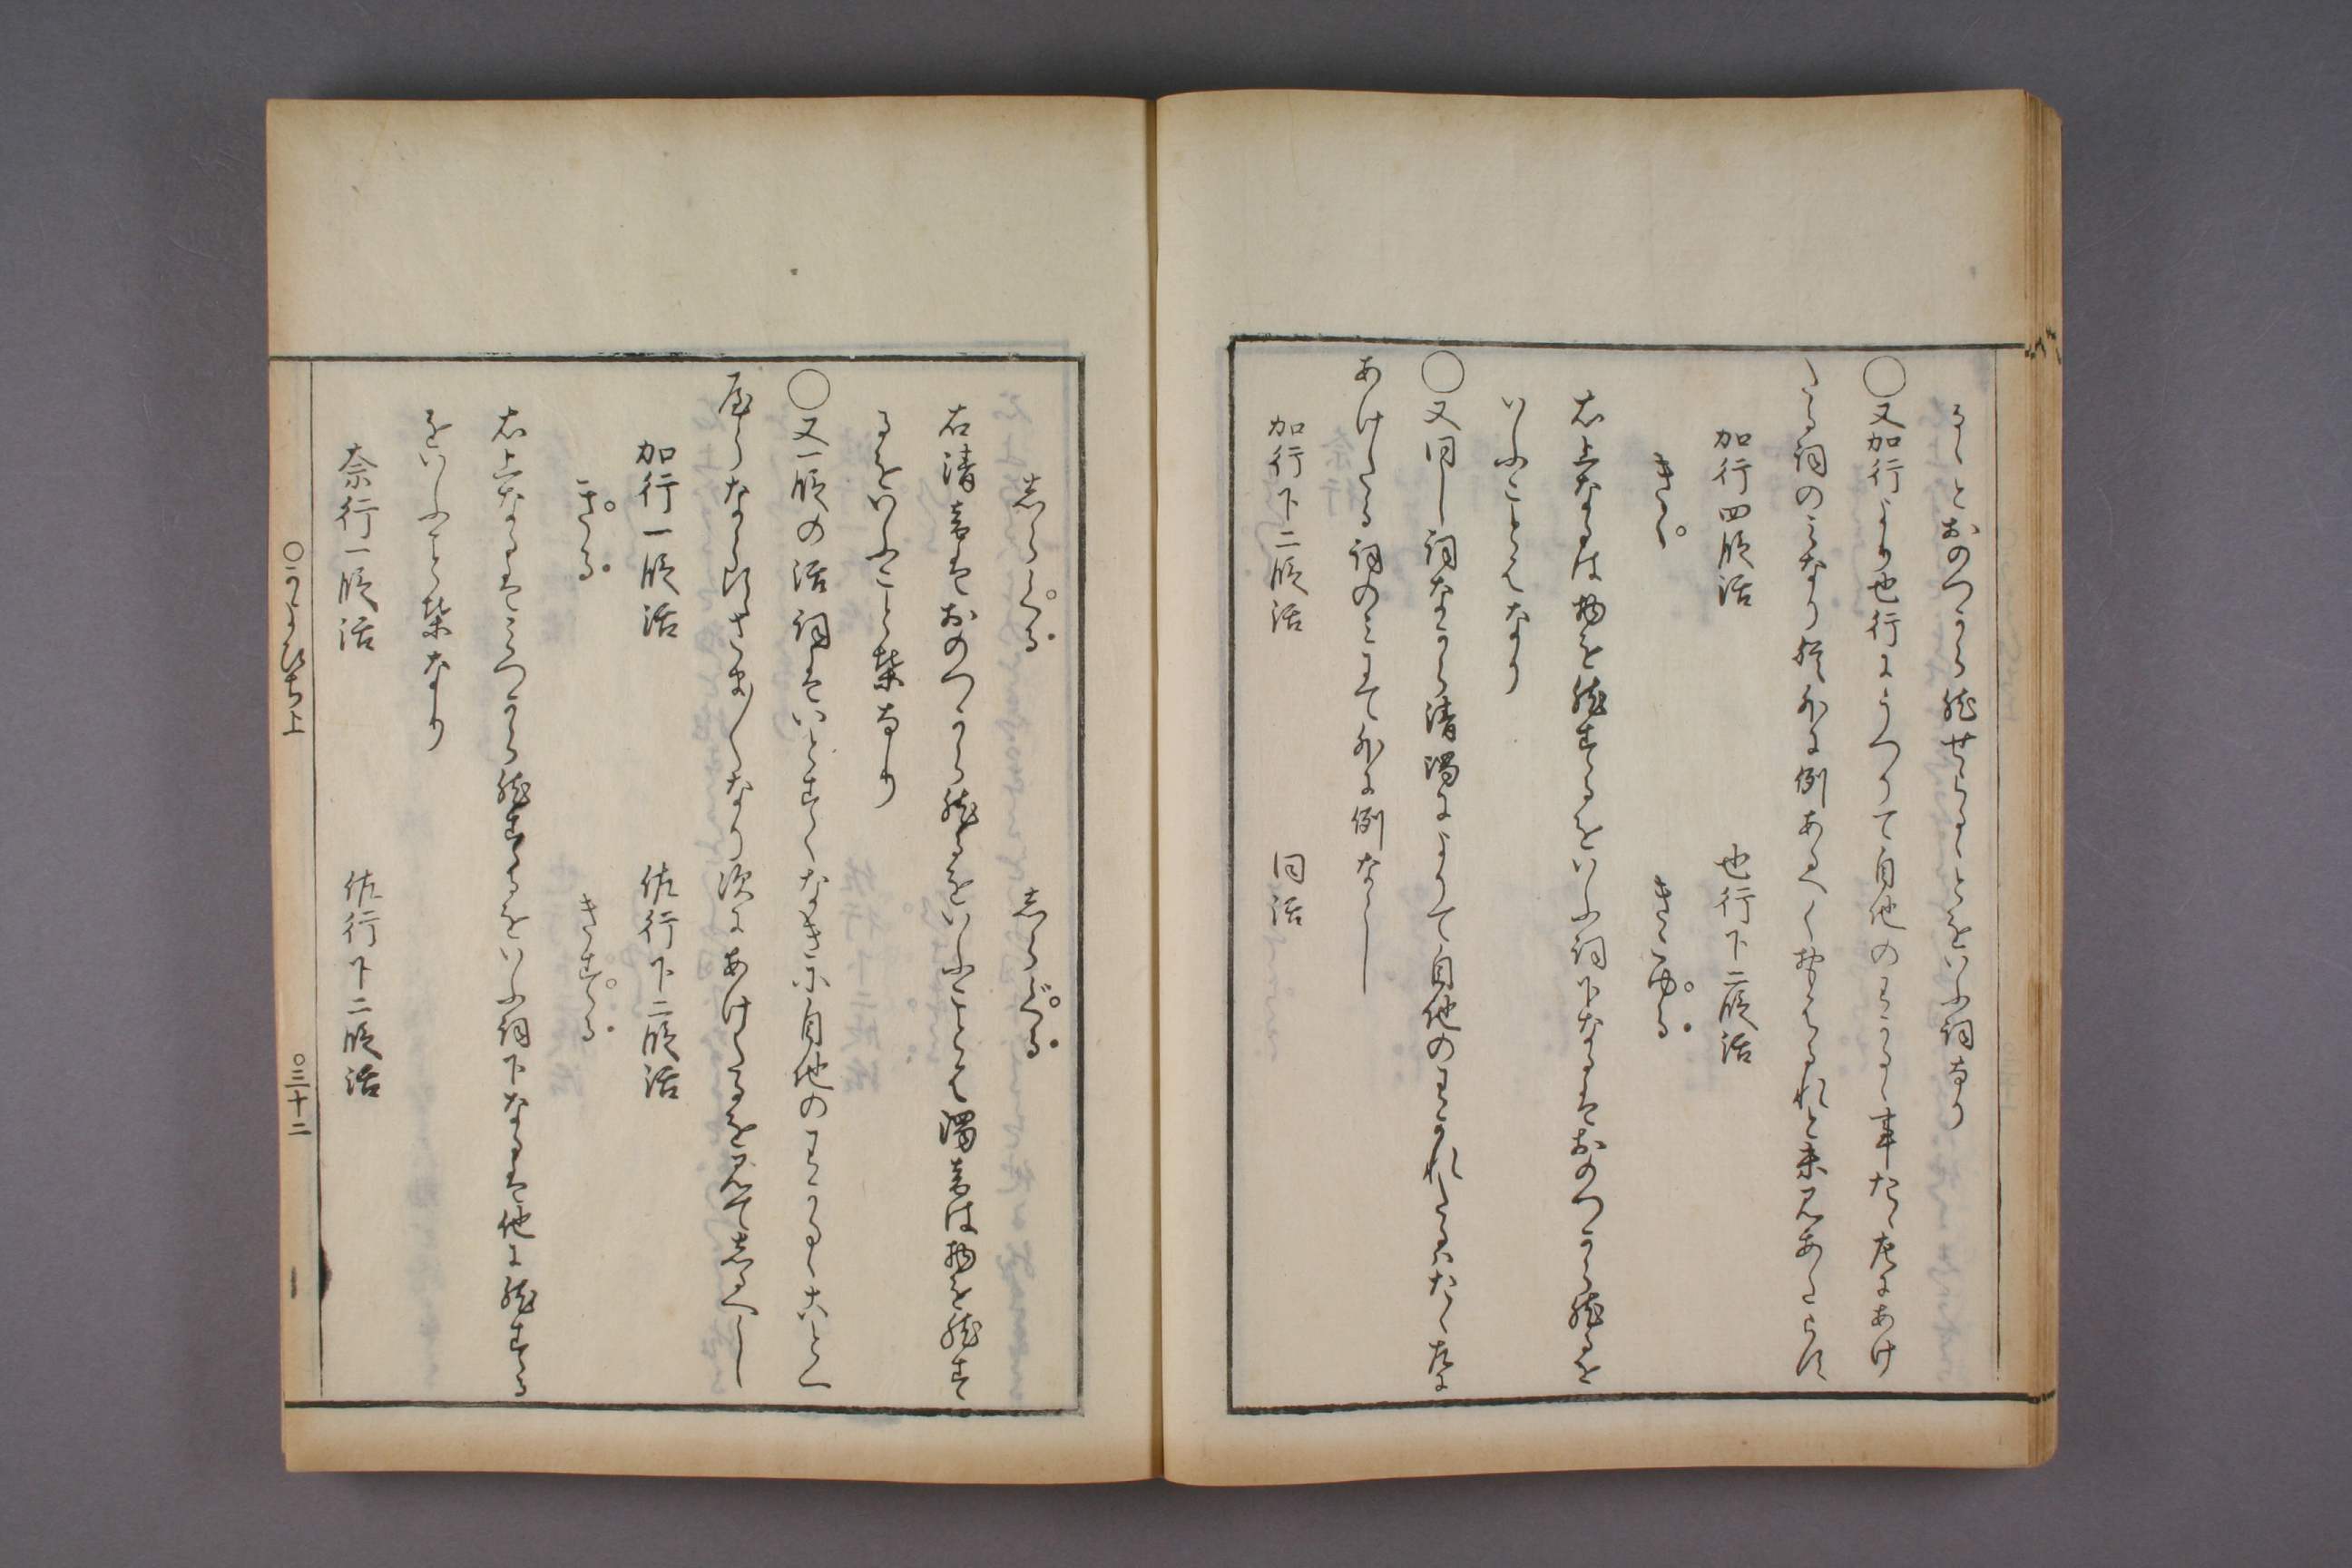 るゝとおのつから然せらるゝとをいふ詞なり
○又加行より也行にうつりて自他のわかるゝ事たゝ左にあけ
たる詞のみなり猶外に例あるへくおもはるれと未見あたらす
加行四段活　也行下二段活
きく　きこゆる
右上なるは物を然するをいふ詞下なるはおのつから然るを
いふことはなり
○又同し詞なから清濁によりて自他のわかれたるはたゝ左に
あけたる詞のみにて外に例なし
加行下二段活　同活
しらくる　しらぐる
右清音はおのつから然るをいふことは濁音は物を然す
るをいふことはなり
○又一段の活詞はいとすくなきに自他のわかるゝことへ
屋うなならひさま〳〵なり次にあけたるを見て志るへし
加行一段活　佐行下二段活
きる　きする
右上なるはみつから然するをいふ詞下なるは他に然する
をいふことはなり
奈行一段活　佐行下二段活
○かよひち上　○三十二